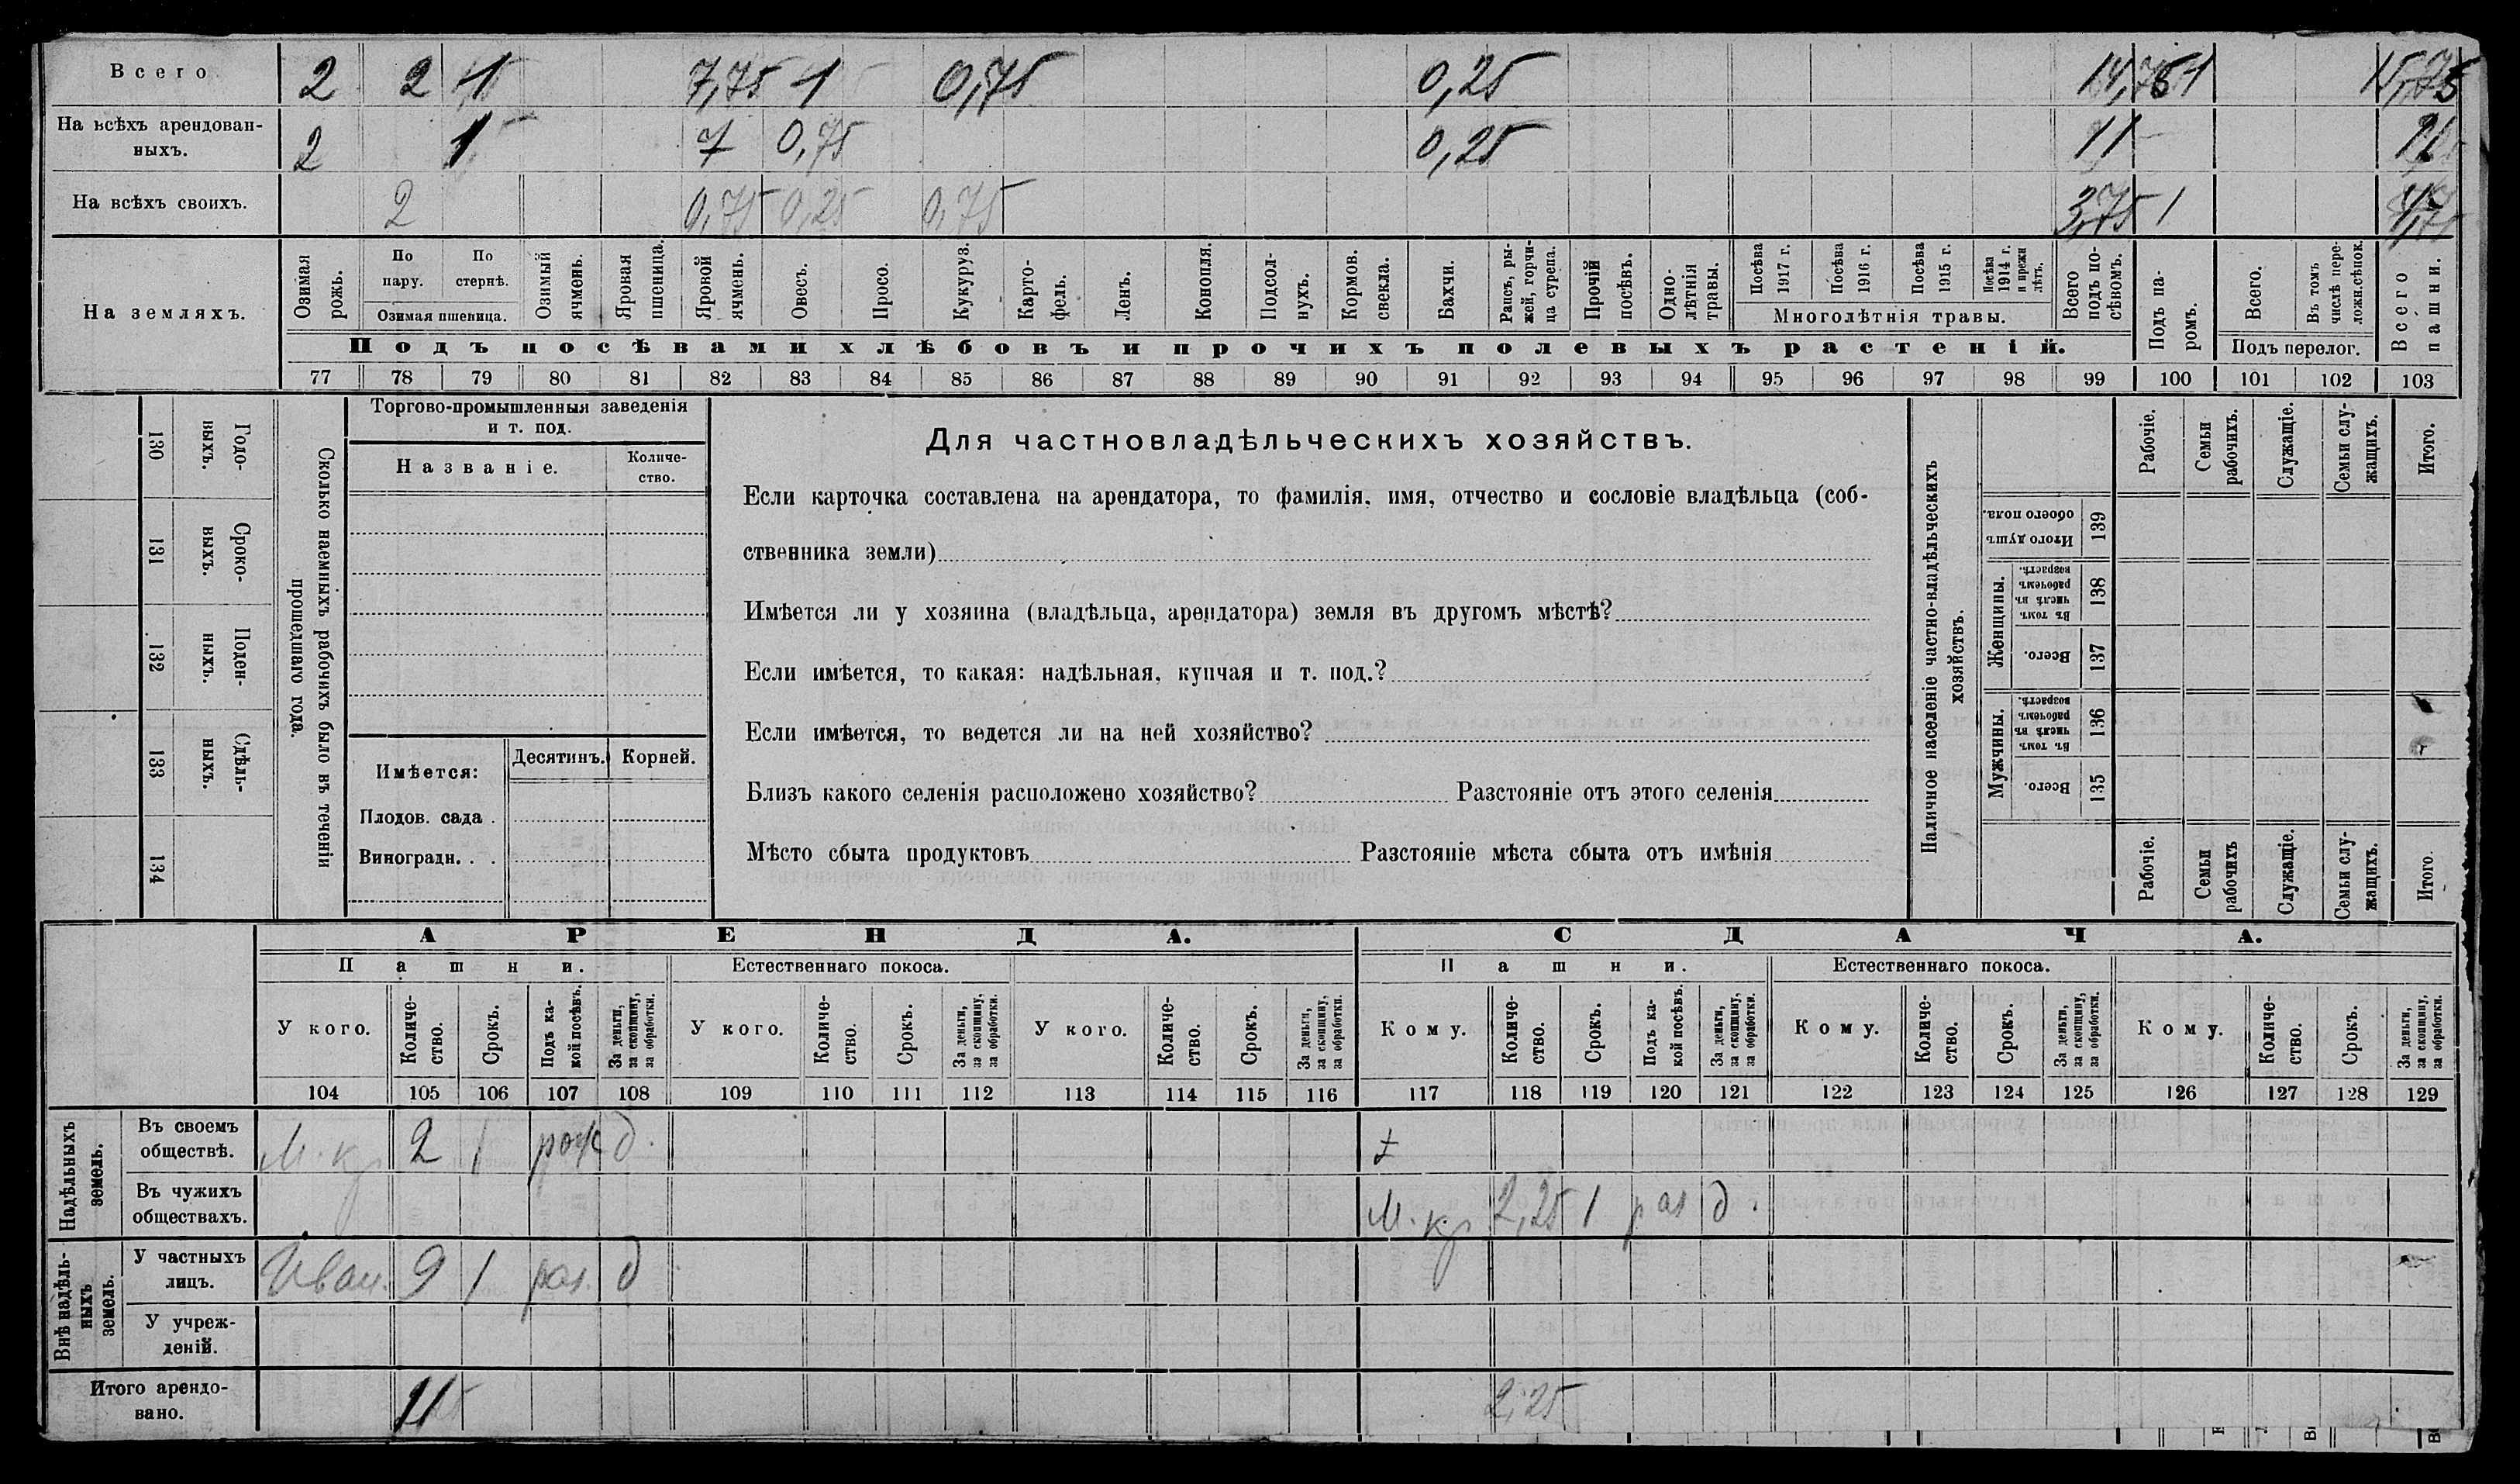 Всего 2 2 1 7,75 1 0,75 0,25 14,75 1 15,75
На всѣхъ арендован-
ныхъ. 2 1 7 0,75 0,25 11
На всѣхъ своихъ. 2 0,75 0,25 0,75 3,75 1
На земляхъ.
Озимая рожь.
По пару.
По стернѣ.
Озимая пшеница.
Озимый ячмень.
Яровая пшеница.
Яровой ячмень.
Овесъ.
Просо.
Кукуруз.
Карто-
фель.
Ленъ.
Конопля.
Подсол-
нухъ.
Кормов. свекла.
Бахчи.
Рапсъ, ры-
жей, горчи-
ца сурепа.
Прочій посѣвъ.
Одно-
лѣтнія травы.
Посѣва 1917 г.
Посѣва 1916 г.
Посѣва 1915 г.
Посѣва 1914 г. и прежн лѣтъ.
Многолѣтнія травы.
Всего подъ по-
сѣвомъ.
Подъ па-
ромъ.
Всего.
Въ томъ числѣ пере-
ложн.сѣнок.
Подъ перелог.
Всего пашни.
Подъ посѣвами хлѣбовъ и прочихъ полевыхъ растеній.
77 78 79 80 81 82 83 84 85 86 87 88 89 90 91 92 93 94 95 96 97 98 99 100 101 102 103
130 Годо-
выхъ.
131 Сроко-
ныхъ.
132 Поден-
ныхъ.
133 Сдѣль-
ныхъ.
134
Сколько наемныхъ рабочихъ было въ теченіи
прошедшаго года.
Торгово-промышленныя заведенія
и т. под.
Названіе.
Количе-
ство.
Имѣется:
Десятинъ.
Корней.
Плодов. сада .
Виноградн. . .
Для частновладѣльческихъ хозяйствъ.
Если карточка составлена на арендатора, то фамилія, имя, отчество и сословіе владѣльца (соб-
ственника земли)
Имѣется ли у хозяина (владѣльца, арендатора) земля въ другомъ мѣстѣ?
Если имѣется, то какая: надѣльная, купчая и т. под.?
Если имѣется, то ведется ли на ней хозяйство?
Близъ какого селенія расположено хозяйство? Разстояніе отъ этого селенія
Мѣсто сбыта продуктовъ Разстояніе мѣста сбыта отъ имѣнія
Наличное населеніе частно-владѣльческихъ
хозяйствъ.
Рабочіе.
Семьи рабочихъ.
Служащіе.
Семьи слу-
жащихъ.
Итого.
Итого душъ обоего пола. 139
Женщины.
Въ томъ числѣ въ рабочемъ возрастѣ. 138
Всего. 137
Мужчины.
Въ томъ числѣ въ рабочемъ возрастѣ. 136
Всего. 135
Рабочіе.
Семьи рабочихъ
Служащіе.
Семьи слу-
жащихъ.
Итого.
АРЕНДА.
СДАЧА.
Пашни.
Естественнаго покоса.
Пашни.
Естественнаго покоса.
У кого.
Количе-
ство.
Срокъ.
Подъ ка-
кой посѣвъ.
За деньги, за скопщину, за обработки.
У кого.
Количе-
ство.
Срокъ.
За деньги, за скопщину, за обработки.
У кого.
Количе-
ство.
Срокъ.
За деньги, за скопщину, за обработки.
Кому.
Количе-
ство.
Срокъ.
Подъ ка-
кой посѣвъ.
За деньги, за скопщину, за обработки.
Кому.
Количе-
ство.
Срокъ.
За деньги, за скопщину, за обработки.
Кому.
Количе-
ство.
Срокъ.
За деньги, за скопщину, за обработки.
104 105 106 107 108 109 110 111 112 113 114 115 116 117 118 119 120 121 122 123 124 125 126 127 128 129
Надѣльныхъ земель.
Въ своемъ
обществѣ. М. кр 2 1 рож д.
Въ чужихъ
обществахъ. М. кр 2,25 1 раз д.
Внѣ надѣль-
ныхъ земель.
У частныхъ
лицъ. Иван. 9 1 раз. д
У учреж-
деній.
Итого арендо-
вано. 11 2,25